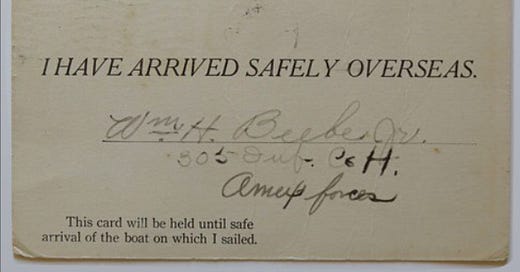 I HAVE ARRIVED SAFELY OVERSEAS.
Wm H. Beebe Jr.
305 Inf. Co H.
Amex forces
This card will be held until safe
arrival of the boat on which I sailed.